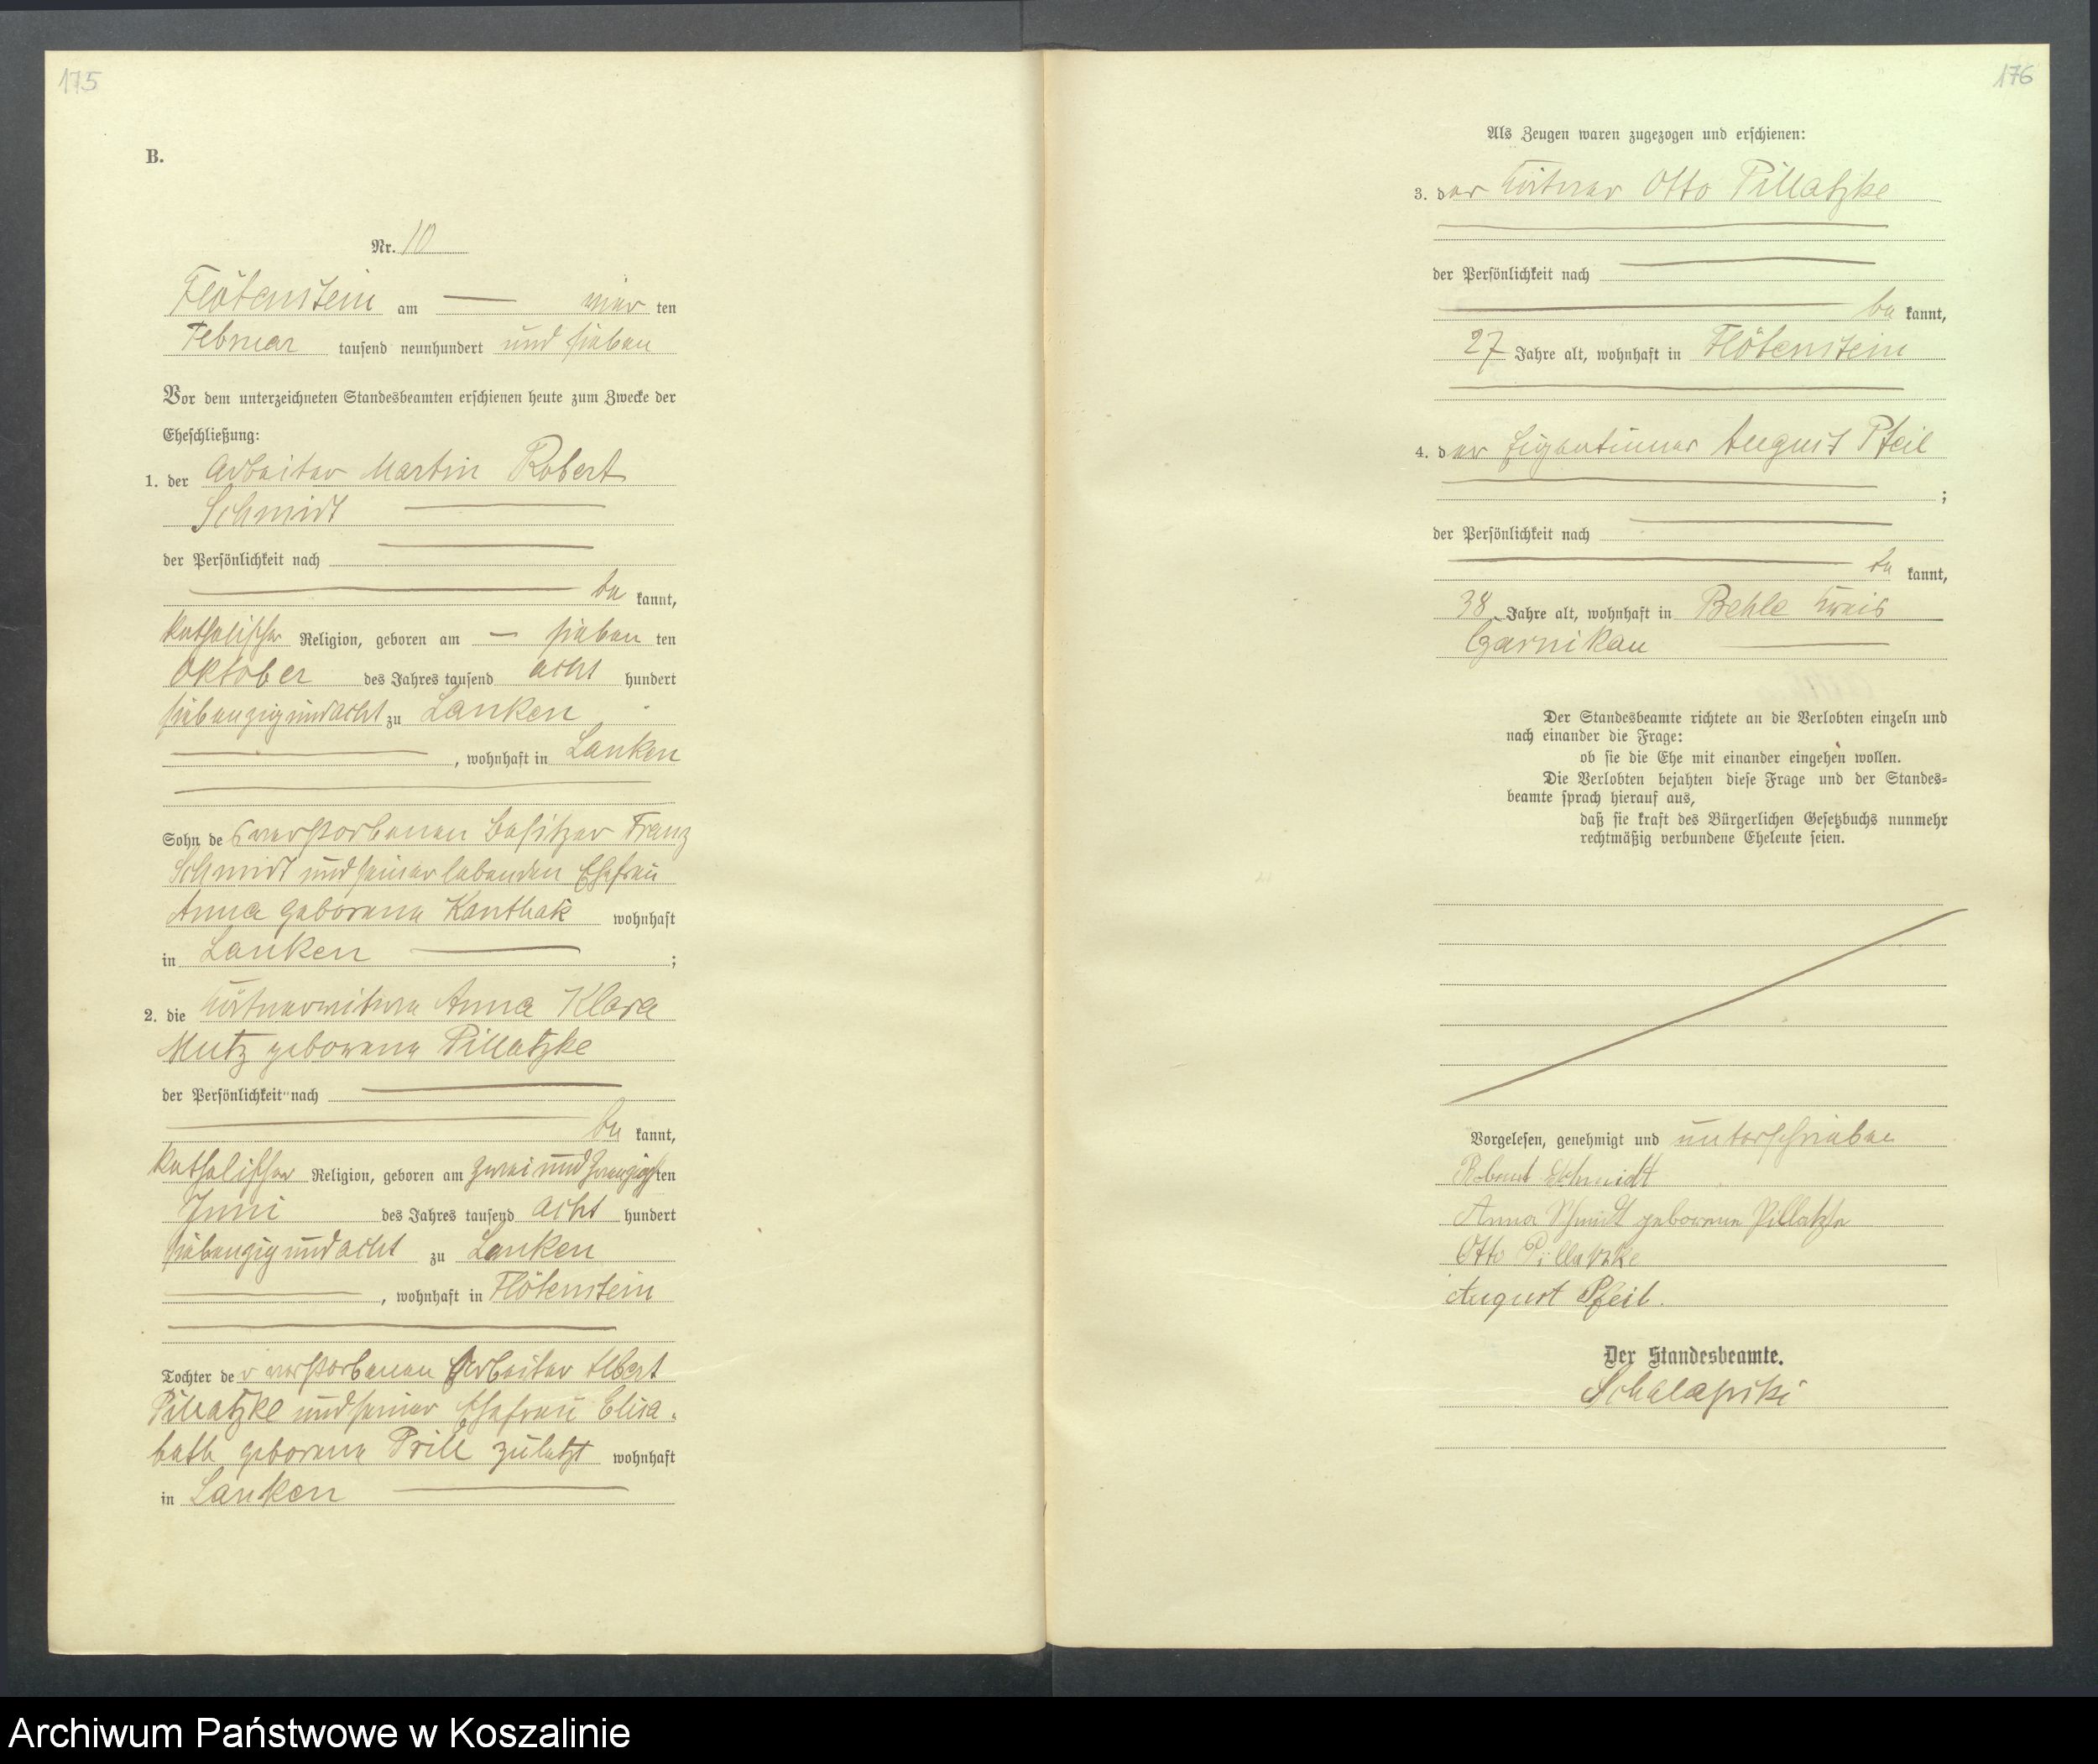 175
B.
Nr. 10
Flötenstein am vier ten
Februar tausend neunhundert und sieben
Vor dem unterzeichneten Standesbeamten erschienen heute zum Zwecke der
Eheschließung:
1. der Arbeiter Martin Robert
Schmidt
der Persönlichkeit nach
be kannt,
katholischer Religion, geboren am sieben ten
Oktober des Jahres tausend acht hundert
siebenzig und acht zu Lanken
, wohnhaft in Lanken
Sohn des verstorbenen Besitzer Franz
Schmidt und seiner lebenden Ehefrau
Anna geborene Kanthak wohnhaft
in Lanken ;
2. die Kätnerwitwe Anna Klara
Mutz geborene Pillatzke
der Persönlichkeit nach
be kannt,
katholischer Religion, geboren am zwei und zwanzigsten
Juni des Jahres tausend acht hundert
siebenzig und acht zu Lanken
, wohnhaft in Flötenstein
Tochter der verstorbenen Arbeiter Albert
Pillatzke und seiner Ehefrau Elisa-
beth geborene Prill zuletzt wohnhaft
in Lanken
176
Als Zeugen waren zugezogen und erschienen:
3. der Kätner Otto Pillatzke
der Persönlichkeit nach
be kannt,
27 Jahre alt, wohnhaft in Flötenstein
4. der Eigentümer August Pfeil
;
der Persönlichkeit nach
be kannt,
38 Jahre alt, wohnhaft in Behle Kreis
Czarnikau
Der Standesbeamte richtete an die Verlobten einzeln und
nach einander die Frage:
ob sie die Ehe mit einander eingehen wollen.
Die Verlobten bejahten diese Frage und der Standes-
beamte sprach hierauf aus,
daß sie kraft des Bürgerlichen Gesetzbuchs nunmehr
rechtmäßig verbundene Eheleute seien.
Vorgelesen, genehmigt und unterschrieben
Robert Schmidt
Anna Schmidt geborene Pillatzke
Otto Pillatzke
August Pfeil.
Der Standesbeamte.
Schalapski
Archiwum Państwowe w Koszalinie